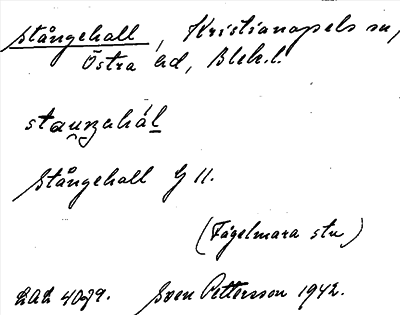 Stångehall, Kristianopels sn,
Östra hd, Blek. l.
Stångehall G 11.
(Fågelmara stn)
Sven Pettersson 1942.